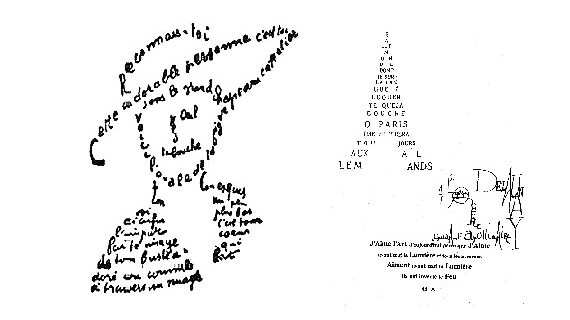 Reconnais-toi
Cette adorable personne c'est toi
Sous le grand chapeau canotier
Oeil
la bouche
Voici l'ovale de ta figure
Ton cou exquis
ci enfin
l'impar
faite image
de ton buste a
doré vu comme
à travers un nuage
un peu
plus bas
c'est ton
coeur
qui
bat
S
A
LUT
M
ON
D E
DONT
JE SUIS
LA LAN
GUE É
LOQUEN
TE QUE SA
BOUCHE
O PARIS
TIRE ET TIRERA
TOU JOURS
AUX A L
LEM ANDS
J'Aime l'Art d'aujourd'hui parce que J'Aime
avant tout la Lumière et tous les hommes
Aiment avant tout la Lumière
ils ont inventé le Feu